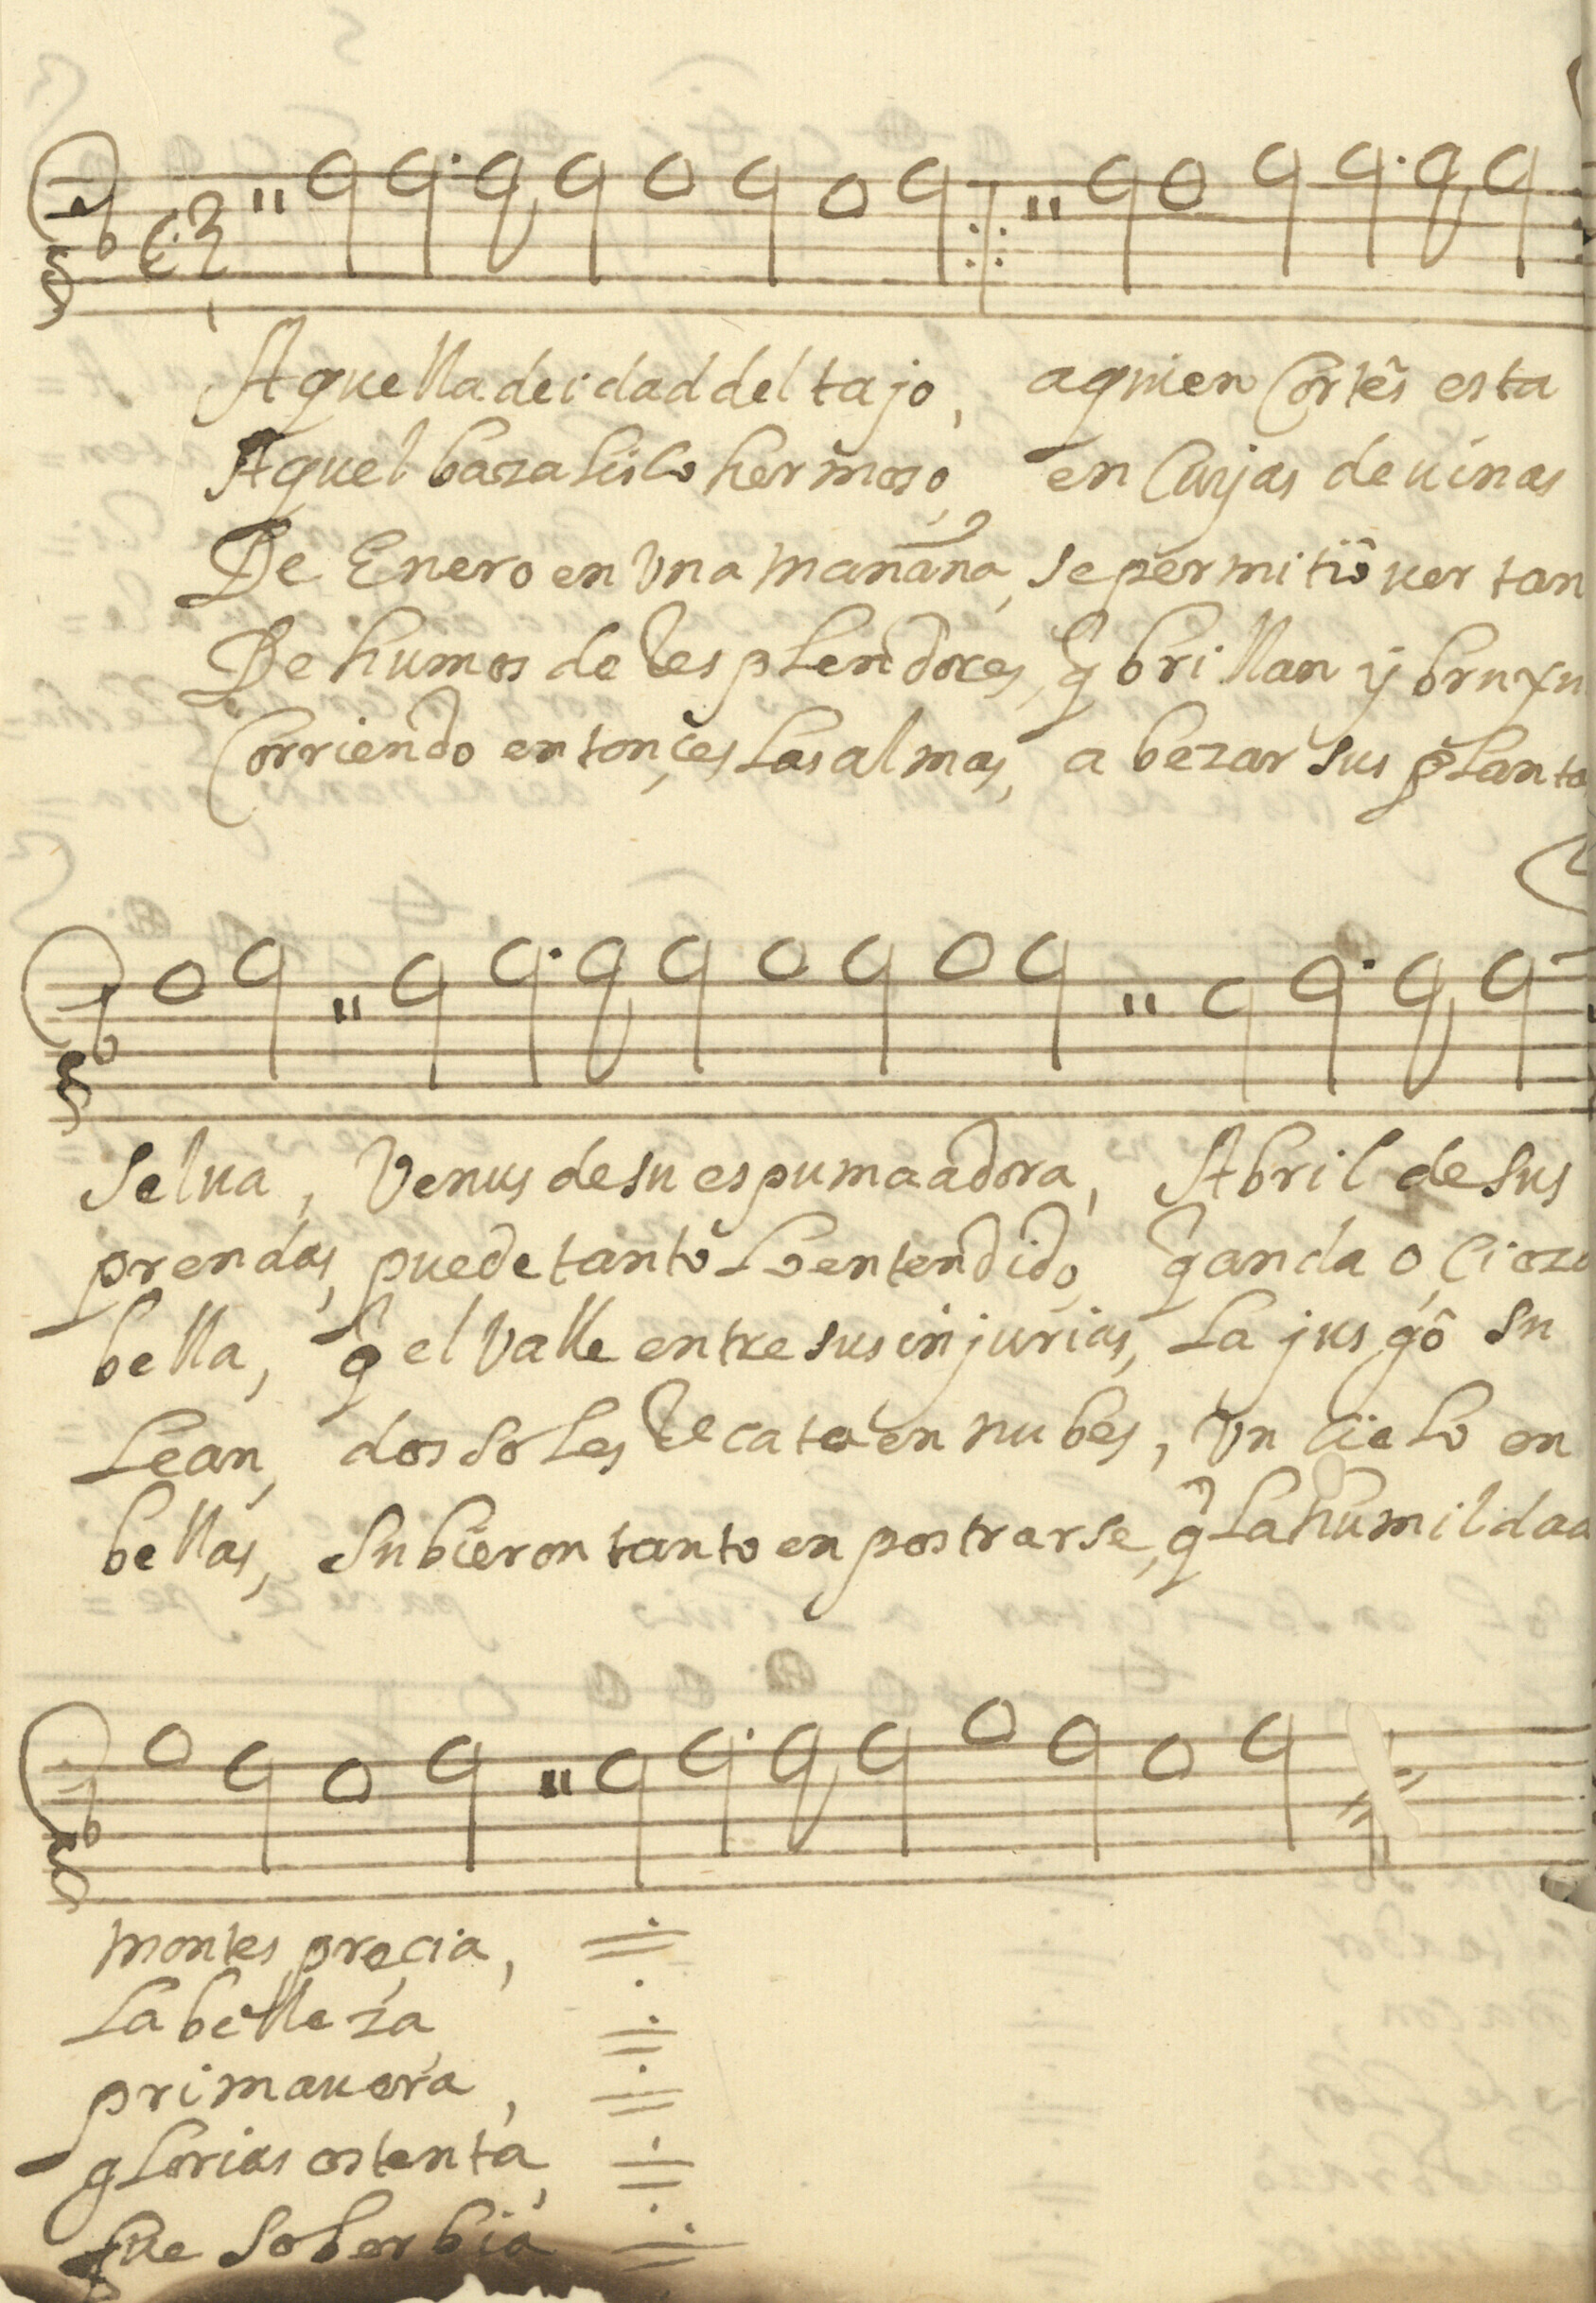 Aquella deidad del tajo, aquien Cortês esta
Aquel bazalisco hermozo, en Cuyas deuinas
De Enero en Vna mañana, se permitiô uer tan
De humos de Resplendores, q̃ brillan y bruxu
Corriendo entonçes las almas, a bezar sus planta
Selua, Venus de su espuma adora, Abril de sus
prendas, puede tanto lo entendido, q̃ anda o,cioza
bella, q̃ el Valle entre sus injurias, la jusgô su
Lean, dos soles Recata en nubes, Vn cielo en
bellas, Subieron tanto en postrarse, q̃ la humildad
montes precia,
La belleza,
primauera,
glorias ostenta,
fue Soberbia